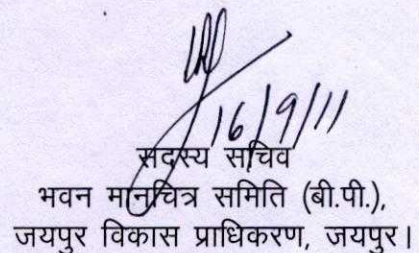 16/9/11
सदस्य सचिव
भवन मानचित्र समिति (बी.पी.),
जयपुर विकास प्राधिकरण, जयपुर।